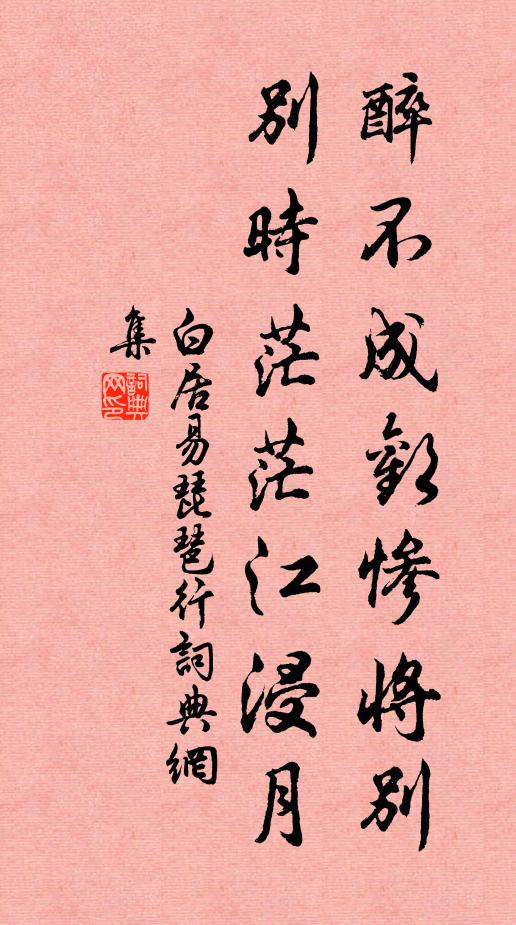 醉不成歡慘將別
別時茫茫江浸月
白居易琵琶行詞典網
集
詞典网印